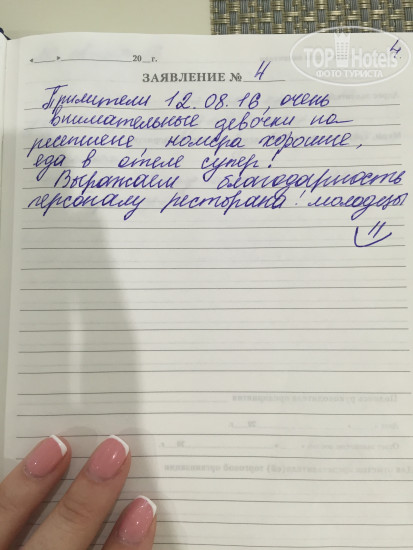 TOP Hotels
ФОТО ТУРИСТА
4.
«___»____________20__г.
ЗАЯВЛЕНИЕ № 4
Прилители 12.08.16, очень
внимательные девочки на
ресепшене, номера хорошие,
еда в отеле супер!
Выражаем благодарность
персоналу ресторана! молодцы